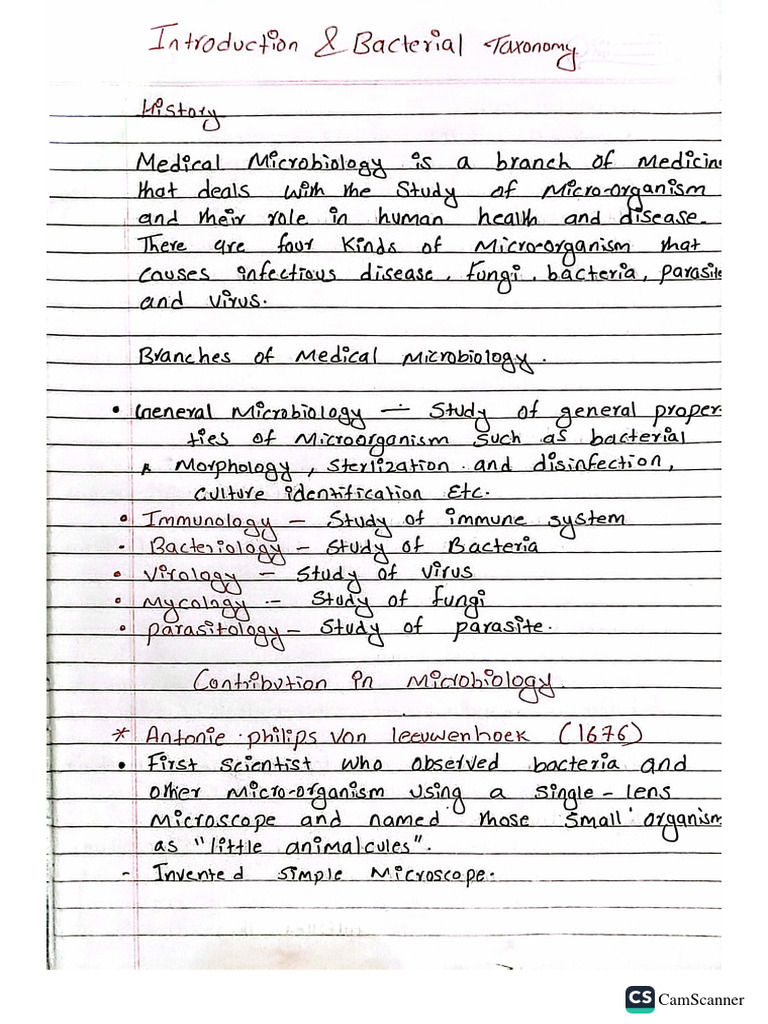 Introduction & Bacterial Taxonomy
History
Medical Microbiology is a branch of Medicin
that deals with the Study of Micro-organism
and their role in human health and disease.
There are four Kinds of Micro-organism that
causes infectious disease, fungi, bacteria, parasite
and virus.
Branches of Medical Microbiology.
• General Microbiology – Study of general proper-
ties of Microorganism such as bacterial
Morphology, sterlization and disinfection,
culture identification Etc.
• Immunology – Study of immune system
• Bacteriology – Study of Bacteria
• Virology – Study of virus
• Mycology – Study of fungi
• parasitology – Study of parasite.
Contribution in Microbiology.
* Antonie philips von leeuwenhoek (1676)
• First scientist who observed bacteria and
other Micro-organism using a single-lens
Microscope and named those small organism
as "little animalcules".
- Invented simple Microscope.
CS CamScanner